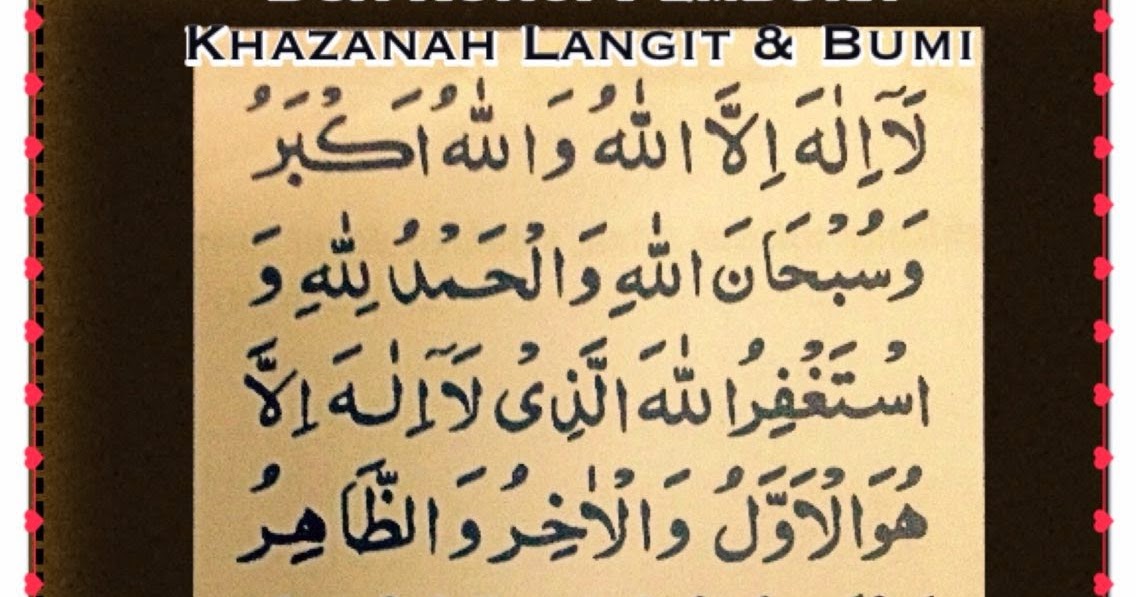 KHAZANAH LANGIT & BUMI
لَآ اِلٰهَ اِلَّا اللّٰهُ وَاللّٰهُ اَكْبَرُ
وَسُبْحَانَ اللّٰهِ وَالْحَمْدُ لِلّٰهِ وَ
اسْتَغْفِرُ اللّٰهَ الَّذِىْ لَآ اِلٰهَ اِلَّا
هُوَ الْاَوَّلُ وَالْاٰخِرُ وَالظَّاهِرُ